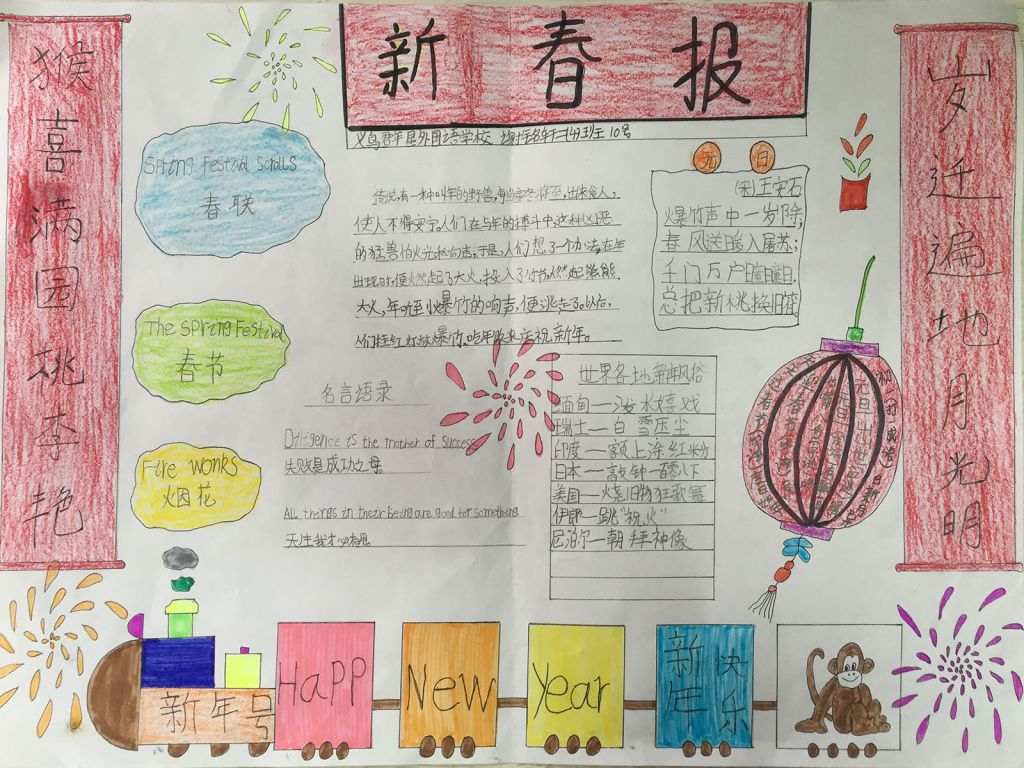 新春报
猴喜满园桃李艳
岁迁遍地月光明
义乌群星外国语学校
10号
Spring Festival Scrolls
春联
The Spring Festival
春节
Fire Wonks
烟花
传说,有一种叫年的野兽,每当寒冬将至,出来食人,
使人不得安宁,人们在与年的搏斗中,这种凶恶
的猛兽怕火光和响声,于是,人们想了个办法,在年
出现时,便燃起了大火,投入了竹节,燃起熊熊
大火,年听到爆竹的响声,便逃走了。以后,
人们挂红灯放爆竹,吃年饭来庆祝新年。
元日
(宋)王安石
爆竹声中一岁除,
春风送暖入屠苏;
千门万户曈曈日,
总把新桃换旧符
名言语录
Diligence is the mother of success
失败是成功之母
All things in their being are good for something
天生我才必有用
世界各地新年风俗
缅甸—泼水嬉戏
瑞士—白雪压尘
印度—额上涂红粉
日本—敲钟一百零八下
美国—烧旧物狂歌舞
伊朗—跳"祝火"
尼泊尔—朝拜神像
新年号
HaPP
New
Year
新年快乐